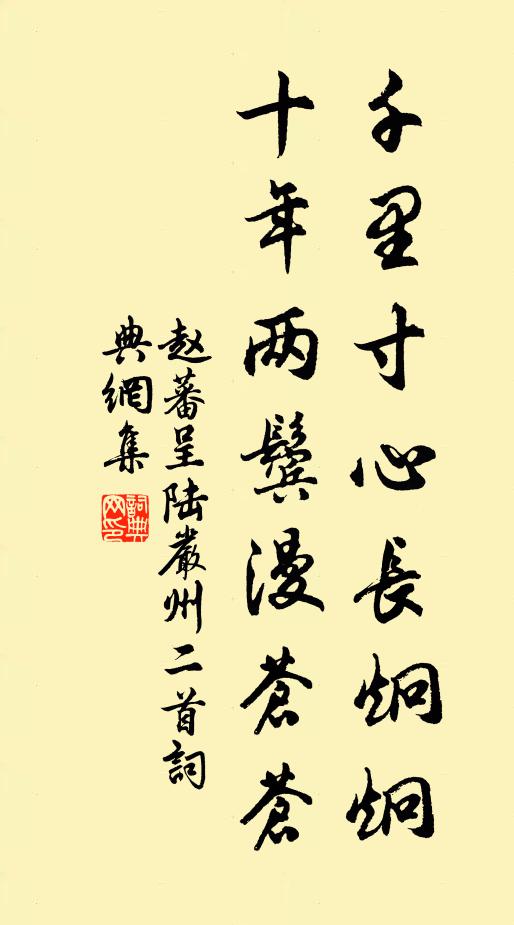 千里寸心長炯炯
十年两鬓漫蒼蒼
赵蕃呈陆嚴州二首詞
典網集
詞典网印